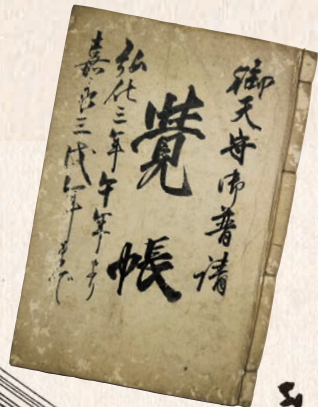 御天守御普請
覺帳
弘化三年午年より
嘉永三戌年まで